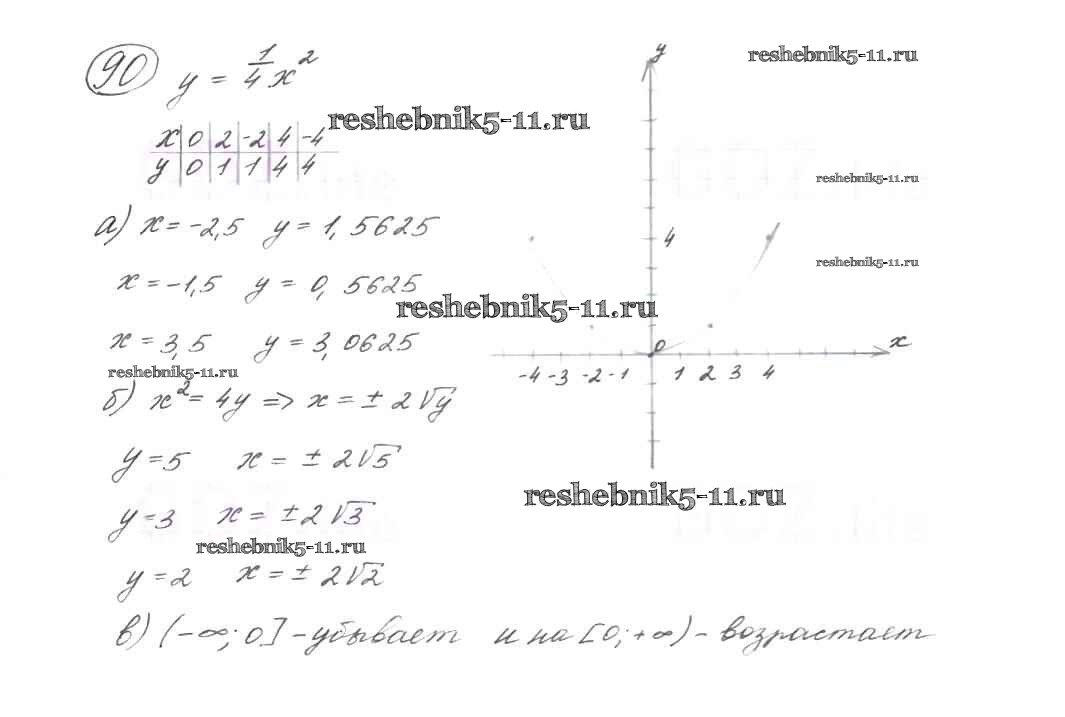 90 y = 1/4 x²
x | 0 | 2 | -2 | 4 | -4
y | 0 | 1 | 1 | 4 | 4
а) x = -2,5 y = 1,5625
x = -1,5 y = 0,5625
x = 3,5 y = 3,0625
б) x² = 4y => x = ± 2√y
y = 5 x = ± 2√5
y = 3 x = ± 2√3
y = 2 x = ± 2√2
в) (-∞; 0] - убывает и на [0; +∞) - возрастает
y
4
0
x
-4 -3 -2 -1 1 2 3 4
reshebnik5-11.ru
reshebnik5-11.ru
reshebnik5-11.ru
reshebnik5-11.ru
reshebnik5-11.ru
reshebnik5-11.ru
reshebnik5-11.ru
reshebnik5-11.ru